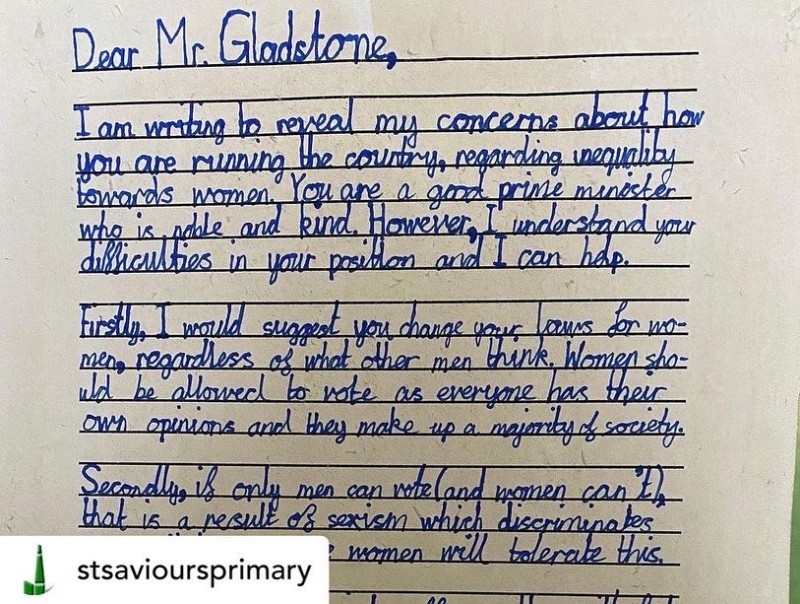 Dear Mr. Gladstone,
I am writing to reveal my concerns about how
you are running the country, regarding inequality
towards women. You are a good prime minister
who is noble and kind. However, I understand your
difficulties in your position and I can help.
Firstly, I would suggest you change your laws for wo-
men, regardless of what other men think. Women sho-
uld be allowed to vote as everyone has their
own opinions and they make up a majority of society.
Secondly, if only men can vote (and women can't),
that is a result of sexism which discriminates
women will tolerate this.
stsavioursprimary